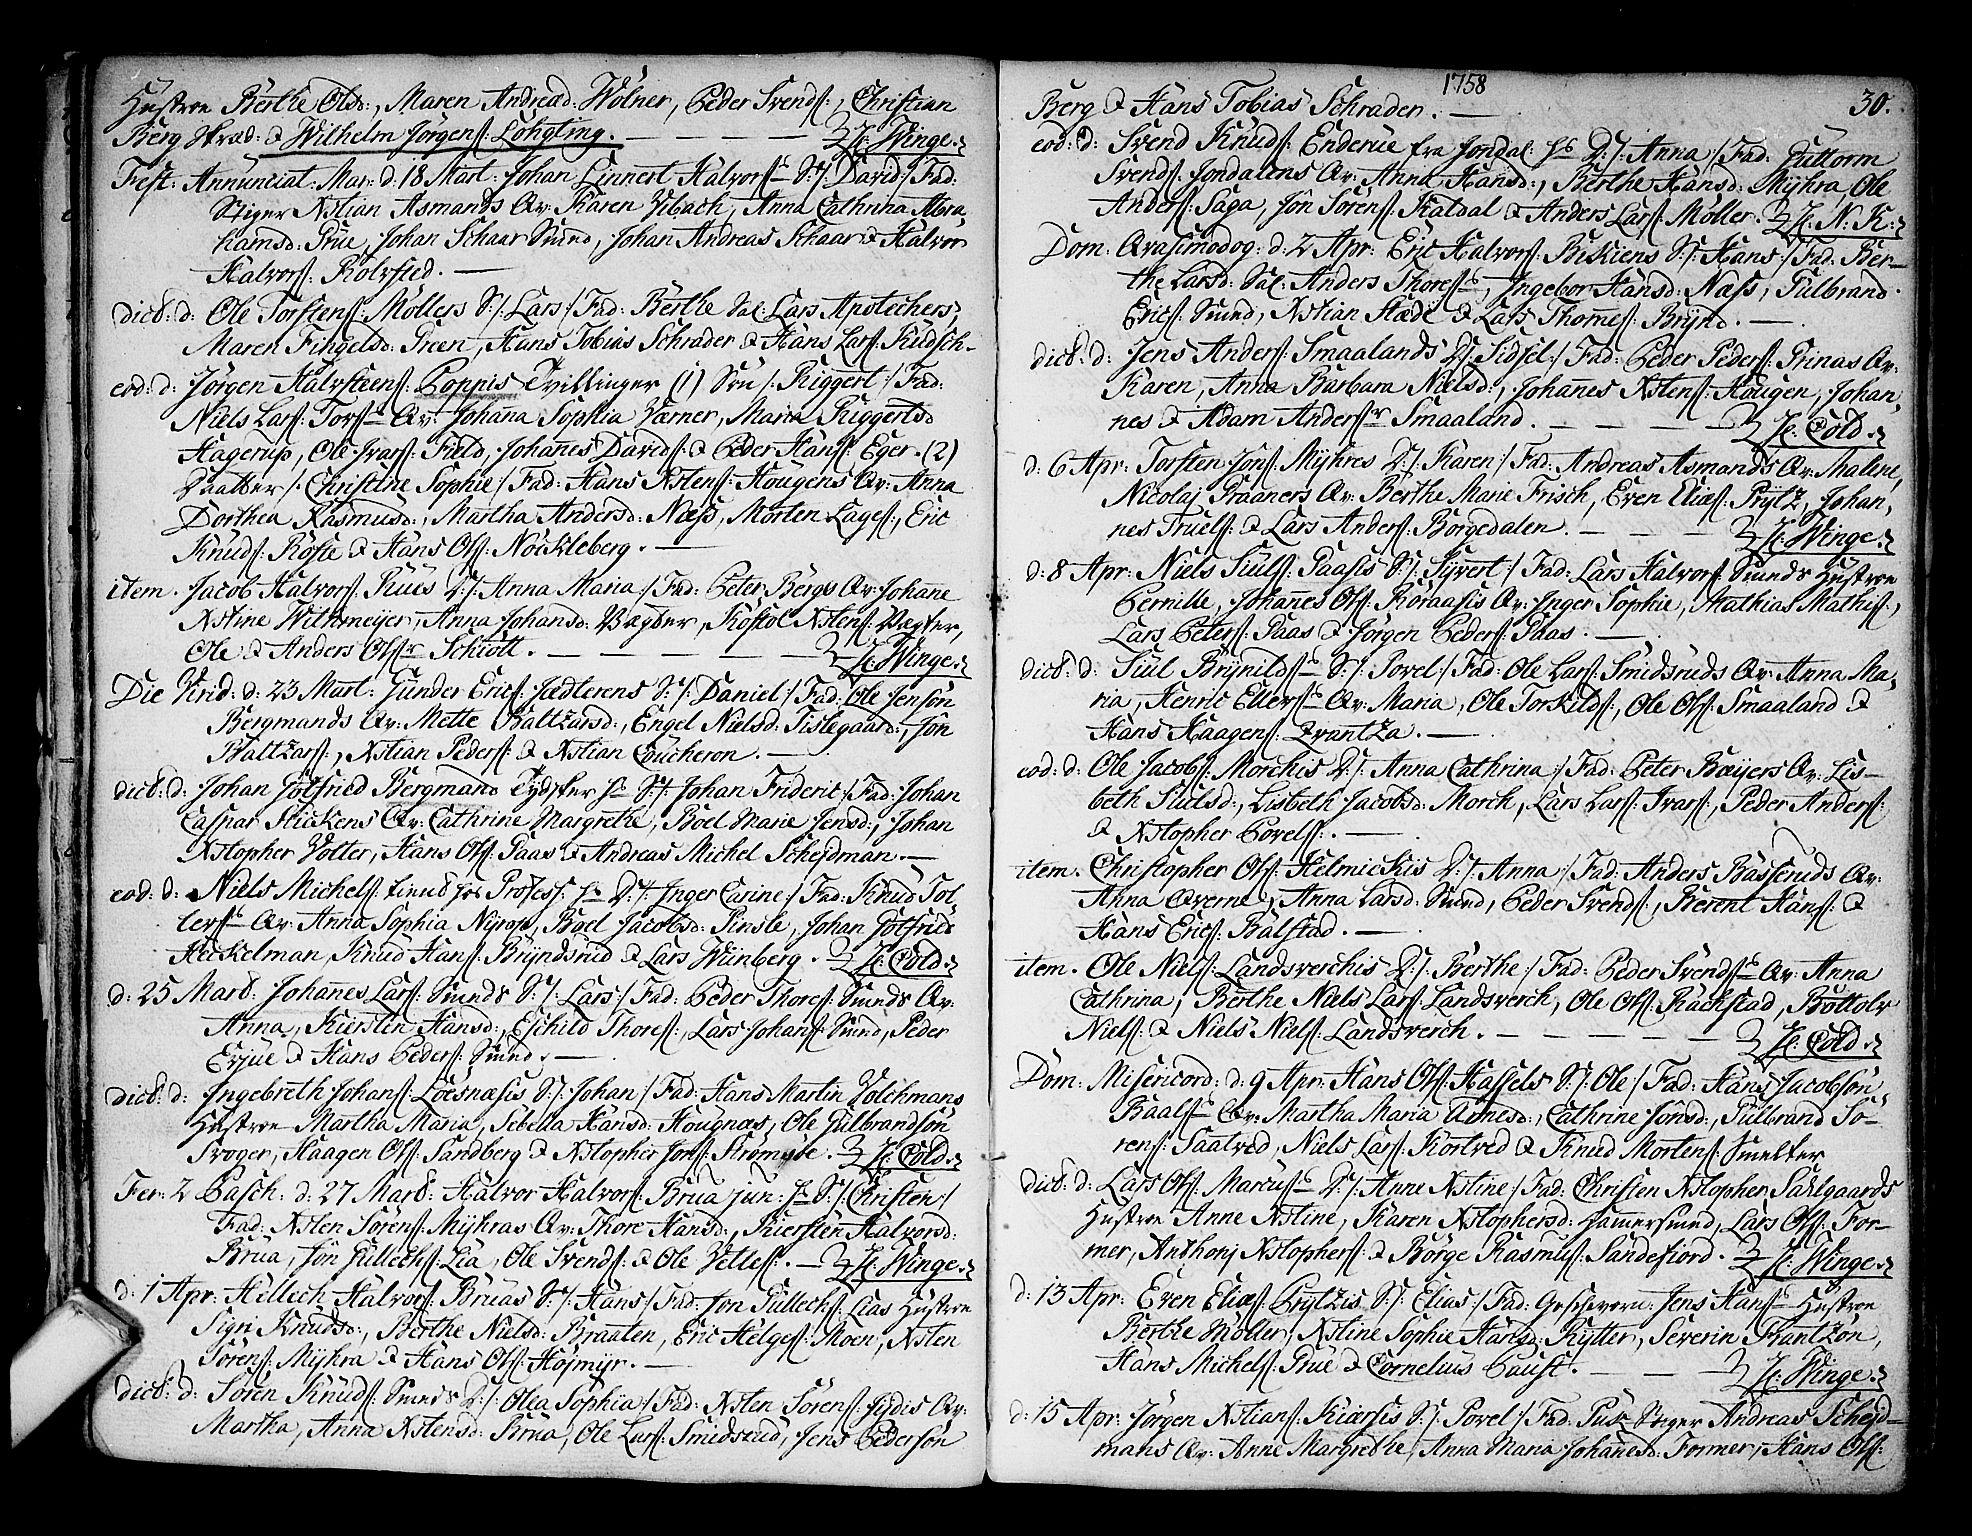 Hustroe Berthe Olsd:, Maren Andread: Wölner, Peder Svends:, Christian
Berg & Wilhelm Jörgens: Löhgting. — — — — H: Winge.
Fest: Annunciat: Mar: d: 18 Mart: Johan Linnert Halvors: S:/: David:/ Fad:
Stiger Xstian Asmands Qv: Karen Ubach, Anna Cathrina Abra-
hamsd: Prüe, Johan Schaar Sund, Johan Andreas Schaar & Halvor
Halvors: Rolvsfied. —
dict: d: Ole Torstens: Möllers S:/: Lars:/ Fad: Berthe Sal: Lars Apotechers,
Maren Fingelsd: Green, Hans Tobias Schrader & Hans Lars: Kudsch-
eod: d: Jörgen Halvsteens: Poppis Tvillinger (1) Sön/: Riggert:/ Fad:
Niels Lars: Tors: Qv: Johana Sophia Værner, Maria Riggertsd
Hagerup, Ole Ivars: Field, Johannes Davids: & Peder Hans: Eger. (2)
Daatter/: Christine Sophie:/ Fad: Hans Xstens: Hougens Qv: Anna
Dorthea Rasmusd:, Martha Andersd: Næss, Morten Lages:, Eric
Knuds: Röste & Hans Ols: Nöickleberg. —
item. Jacob Halvors: Ruus D:/: Anna Maria:/ Fad: Peter Bergs Qv: Johane
Xstine Withmeijer, Anna Johansd: Vagter, Kostol Xstens: Vagter,
Ole & Anders Ols: Schiött. — — — — H: Winge.
Die Virid: d: 23 Mart: Gunder Erics: Jædlerens S:/: Daniel:/ Fad: Ole Jensön
Bergmands Qv: Mette Baltzarsd:, Engel Nielsd: Tislegaard:, Jön
Baltzars:, Xstian Peders: & Xstian Coucheron. —
dict: d: Johan Gotfried Bergmand Tydsker S:/: Johan Frideric:/ Fad: Johan
Caspar Stickens Qv: Cathrine Margrethe, Boel Marie Jensd:, Johan
Xstopher Votter, Hans Ols: Paas & Andreas Michel Schejdman. —
eod: d: Niels Michels: tiend hos Profess: D:/: Inger Carine:/ Fad: Knud Tol-
lers: Qv: Anna Sophia Nirop, Boel Jacobsd: Pinsle, Johan Gotfrids
Heckelman, Knud Hans: Bryndsrud & Lars Wünberg. H: Cold.
d: 25 Mart: Johannes Lars: Sunds S:/: Lars:/ Fad: Peder Thores: Sunds Qv:
Anna, Kiersten Hansd:, Eschild Thores:, Lars Johans: Sund, Peder
Erjue & Hans Peders: Sund. —
dict: d: Ingebreth Johans: Loesnæsis S:/: Johan:/ Fad: Hans Martin Volchmans
Hustroe Martha Maria, Sebella Hansd: Hougnæs, Ole Gulbrandsön
Kroger, Haagen Ols: Sandberg & Xstopher Jons: Strömsöe. H: Cold.
Fer: 2 Pasch: d: 27 Mart: Halvor Halvors: Brua jun: S:/: Christen:/
Fad: Xsten Sörens: Myhras Qv: Thore Hansd:, Kiersten Halvorsd:
Brua, Jon Gullechs: Lia, Ole Svends: & Ole Vetles: — H: Winge.
d: 1 Apr: Hellech Halvors: Bruas S:/: Hans:/ Fad: Jon Gullechs: Lias Hustroe
Sigri Knudsd:, Berthe Nielsd: Braaten, Eric Helges: Moen, Xsten
Sörens: Myhra & Hans Ols: Höjmyr. —
dict: d: Sören Knuds: Sunds D:/: Olea Sophia:/ Fad: Xsten Sörens: Qv:
Martha, Anna Xstensd: Brua, Ole Lars: Smidsrud, Jens Pedersön
1758
30.
Berg & Hans Tobias Schrader. —
eod: d: Svend Knuds: Enderüe fra Jondal: D:/: Anna:/ Fad: Guttorm
Svends: Jondalens Qv: Anna Hansd:, Berthe Hansd: Myhra, Ole
Anders: Saga, Jön Sörens: Katdal & Anders Lars: Möller. H: N: K:
Dom: Qvasimodog: d: 2 Apr: Eric Halvors: Biskiens S:/: Hans:/ Fad: Ber-
the Larsd: Sal: Anders Thores:, Ingebor Hansd: Næss, Gulbrand
Erics: Sund, Xstian Stæde & Lars Thomes: Brynd. —
dict: d: Jens Anders: Smaalands D:/: Sidsel:/ Fad: Peder Peders: Prinas Qv:
Karen, Anna Barbara Nielsd:, Johannes Xstens: Hougen, Johan-
nes & Adam Anders: Smaaland. — — — H: Cold.
d: 6 Apr: Torsten Jons: Myhres D:/: Karen:/ Fad: Andreas Asmands Qv: Malene,
Nicolaj Praaners Qv: Berthe Marie Frisch, Even Elies: Prytz, Johan-
nes Truels: & Lars Anders: Borgedalen. — — — H: Winge.
d: 8 Apr: Niels Siuls: Paasis S:/: Syvert:/ Fad: Lars Halvors: Sunds Hustroe
Pernille, Johannes Ols: Koraasis Qv: Inger Sophie, Mathias Mathis:,
Lars Peters: Paas & Jörgen Peders: Paas. —
dict: d: Siul Brynilds: S:/: Povel:/ Fad: Ole Lars: Smidsruds Qv: Anna Ma-
ria, Henric Ellers: Qv: Maria, Ole Torkilds:, Ole Ols: Smaaland &
Hans Haagens: Qvantza. —
eod: d: Ole Jacobs: Morchis D:/: Anna Cathrina:/ Fad: Peter Bæijers Qv: Lis-
beth Siulsd:, Lisbeth Jacobsd: Morch, Lars Lars: Ivars:, Peder Anders:
& Xstopher Povels:. —
item. Christopher Ols: Helmickis D:/: Anna:/ Fad: Anders Basseruds Qv:
Anna Qverne, Anna Larsd: Sund, Peder Svends:, Berent Hans: &
Hans Erics: Bålstad. —
item. Ole Niels: Landsverchis D:/: Berthe:/ Fad: Peder Svends: Qv: Anna
Cathrina, Berthe Niels Lars: Landsverch, Ole Ols: Rachstad, Böttolv
Niels: & Niels Niels: Landsverch. — — — — H: Cold.
Dom: Misericord: d: 9 Apr: Hans Ols: Hassels S:/: Ole:/ Fad: Hans Jacobsön
Baals: Qv: Martha Maria Aimesd:, Cathrine Jensd:, Gulbrand Sö-
rens: Saatved, Niels Lars: Kortved & Knud Mortens: Smelter
dict: d: Lars Ols: Marcus: D:/: Anne Xstine:/ Fad: Christen Xstopher Sahlgaards
Hustroe Anne Xstine, Karen Xstophersd: Hammersund, Lars Ols: For-
mer, Anthonj Xstophers: & Börge Rasmus: Sandefiord. H: Winge.
d: 13 Apr: Even Elies: Prytzis S:/: Elias:/ Fad: Geschworn: Jens Hans: Hustroe
Berthe Möller, Xstine Sophie Hansd: Rytter, Severin Frantzön,
Hans Michels: Prue & Cornelius Paust. — — — H: Winge.
d: 15 Apr: Jörgen Xstians: Kiærsis S:/: Povel:/ Fad: Stiger Andreas Schejd-
mans Qv: Anne Margrethe, Anna Maria Johanesd: Former, Hans Ols: